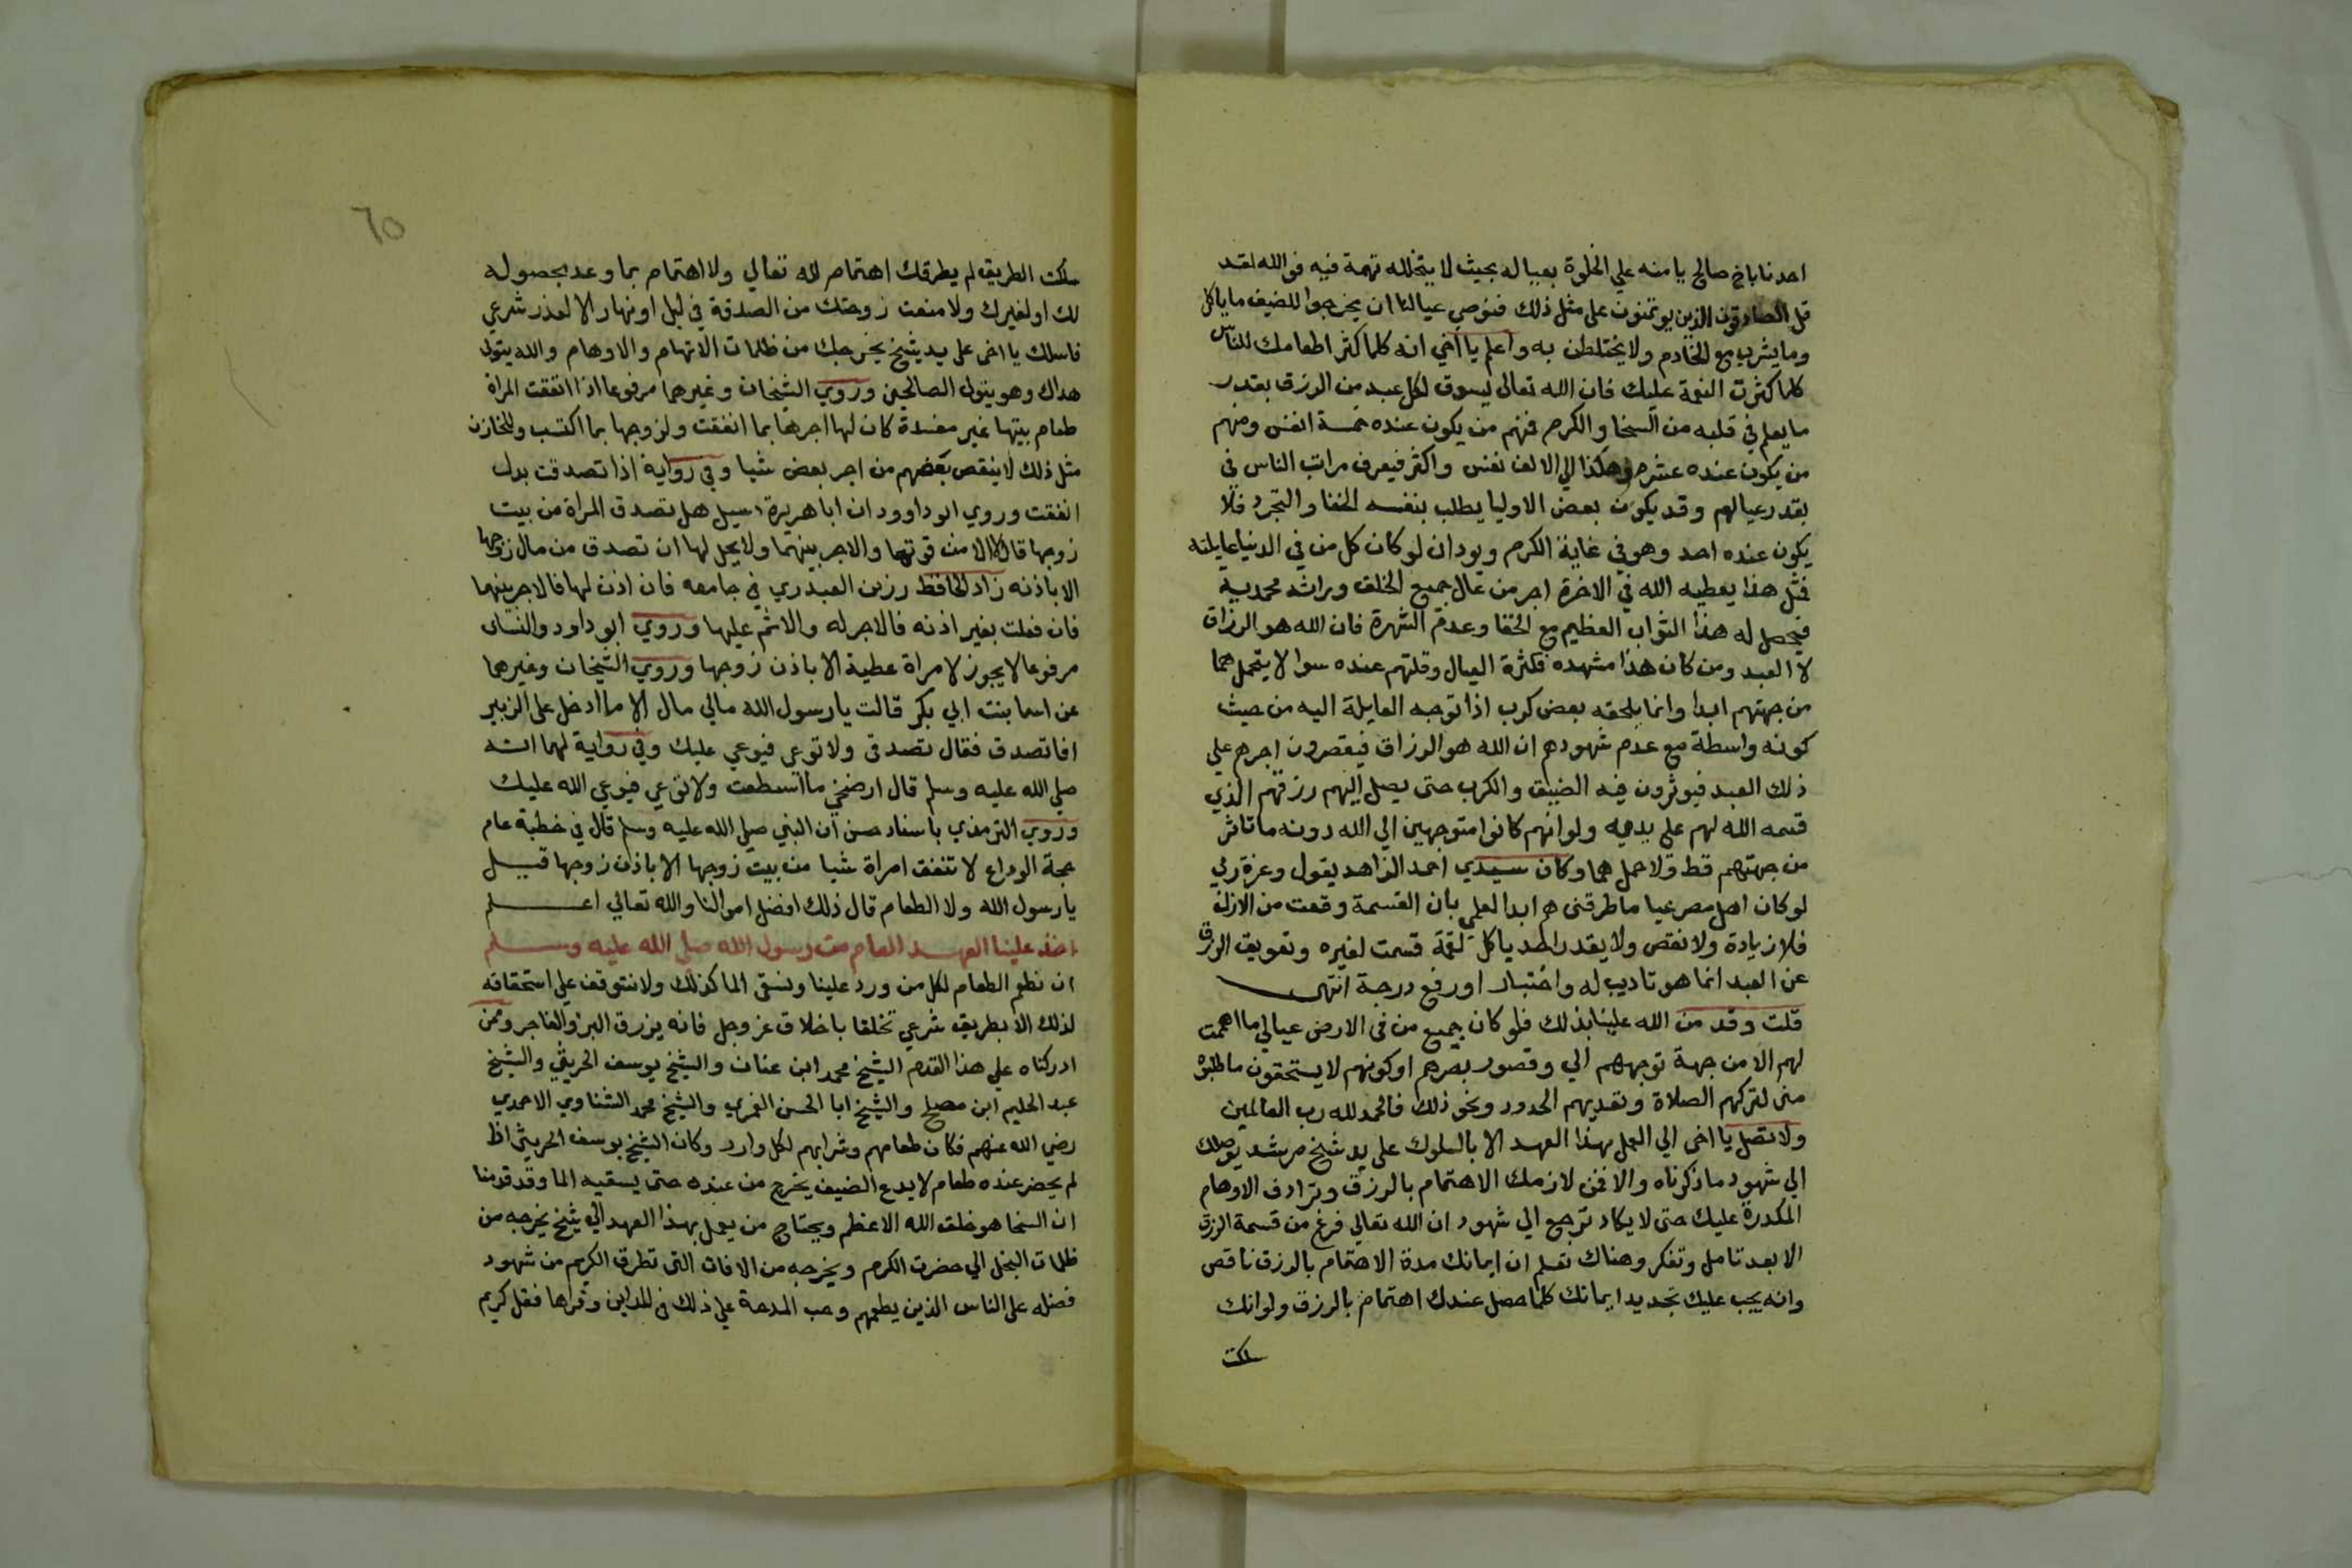 احدنا باخ صالح يا منه علي الخلوة بعياله بحيث لا يتخلله تهمة فيه فوالله لقد
قل الصادقون الذين يوتمنون على مثل ذلك فنوصي عيالنا ان يخرجوا للضيف ما ياكل
وما يشرب مع الخادم ولا يختلطن به واعلم يا اخي انه كلما كثر اطعامك للناس
كلما كثرت النعمة عليك فان الله تعالى يسوق لكل عبد من الرزق بقدر
ما يعلم في قلبه من السخا والكرم فمنهم من يكون عنده خمسة انفس ومنهم
من يكون عنده عشرة وهكذا الي الالف نفس واكثر فيعرف مراتب الناس في
بقدر عيالهم وقد يكون بعض الاوليا يطلب بنفسه الخفا والتجرد فلا
يكون عنده احد وهو في غاية الكرم ويود ان لو كان كل من في الدنيا عايلته
فمثل هذا يعطيه الله في الاخرة اجر من عال جميع الخلق وراثة محمدية
فيحصل له هذا الثواب العظيم مع الخفا وعدم الشهرة فان الله هو الرزاق
لا العبد ومن كان هذا مشهده فكثرة العيال وقلتهم عنده سوا لا يتحمل هما
من جهتهم ابدا وانما يلحقه بعض كرب اذا توجه العايلة اليه من حيث
كونه واسطة مع عدم شهودهم ان الله هو الرزاق فيقصرون اجرهم علي
ذلك العبد فيوثرون فيه الضيق والكرب حتى يصل اليهم رزقهم الذي
قسمه الله لهم على يديه ولو انهم كانوا متوجهين الي الله دونه ما تاثر
من جهتهم قط ولا حمل هما وكان سيدي احمد الزاهد يقول وعزة ربي
لو كان اهل مصر عيا ما طرقني هم ابدا لعلمي بان القسمة وقعت من الازل
فلا زيادة ولا نقص ولا يقدر احد ياكل لقمة قسمت لغيره وتعويق الرزق
عن العبد انما هو تاديب له واختبار او رفع درجة انتهى
قلت وقد من الله علينا بذلك فلو كان جميع من في الارض عيالي ما اهممت
لهم الا من جهة توجههم الي وقصور بصرهم او كونهم لا يستحقون ما طلبوه
مني لتركهم الصلاة وتعديهم الحدود ونحو ذلك فالحمد لله رب العالمين
ولا تصل يا اخى الي العمل بهذا العهد الا بالسلوك على يد شيخ مرشد يوصلك
الي شهود ما ذكرناه والا فمن لازمك الاهتمام بالرزق وترادف الاوهام
المكدرة عليك حتى لا يكاد ترجع الي شهود ان الله تعالي فرغ من قسمة الرزق
الا بعد تامل وتفكر وهناك تعلم ان ايمانك مدة الاهتمام بالرزق ناقص
وانه يجب عليك تجديد ايمانك كلما حصل عندك اهتمام بالرزق ولو انك
سلكت
٦٥
سلكت الطريق لم يطرقك اهتمام لله تعالي ولا اهتمام بما وعد بحصوله
لك او لغيرك ولا منعت زوجتك من الصدقة في ليل او نهار الا لعذر شرعي
فاسلك يا اخى على يد شيخ يخرجك من ظلمات الاتهام والاوهام والله يتولى
هداك وهو يتولى الصالحين وروي الشيخان وغيرهما مرفوعا اذا انفقت المراة
طعام بيتها غير مفسدة كان لها اجرها بما انفقت ولزوجها بما اكتسب وللخازن
مثل ذلك لا ينقص بعضهم من اجر بعض شيا وفي رواية اذا تصدقت بدل
انفقت وروي ابو داوود ان ابا هريرة سيل هل تصدق المراة من بيت
زوجها قال لا الا من قوتها والاجر بينهما ولا يحل لها ان تصدق من مال زوجها
الا باذنه زاد الحافظ رزين العبدري في جامعه فان اذن لها فالاجر بينهما
فان فعلت بغير اذنه فالاجر له والاثم عليها وروي ابو داود والنساى
مرفوعا لا يجوز لامراة عطية الا باذن زوجها وروي الشيخان وغيرهما
عن اسما بنت ابي بكر قالت يا رسول الله مالي مال الا ما ادخل على الزبير
افاتصدق فقال تصدقى ولا توعى فيوعي عليك وفي رواية لهما انه
صلي الله عليه وسلم قال ارضخي ما استطعت ولا توعي فيوعي الله عليك
وروي الترمذي باسناد حسن ان النبي صلي الله عليه وسلم قال في خطبة عام
حجة الوداع لا تنفق امراة شيا من بيت زوجها الا باذن زوجها قيل
يا رسول الله ولا الطعام قال ذلك افضل اموالنا والله تعالي اعلم
اخذ علينا العهد العام من رسول الله صلي الله عليه وسلم
ان نطعم الطعام لكل من ورد علينا ونسقى الما كذلك ولا نتوقف على استحقاقه
لذلك الا بطريق شرعي تخلقا باخلاق عز وجل فانه يرزق البر والفاجر وممن
ادركناه علي هذا القدم الشيخ محمد ابن عنان والشيخ يوسف الحريثي والشيخ
عبد الحليم ابن مصلح والشيخ ابا الحسن الغمري والشيخ محمد الشناوي الاحمدي
رضي الله عنهم فكان طعامهم وشرابهم لكل وارد وكان الشيخ يوسف الحريثي اذا
لم يحضر عنده طعام لا يدع الضيف يخرج من عنده حتى يسقيه الما وقد قدمنا
ان السخا هو خلق الله الاعظم ويحتاج من يعمل بهذا العهد الي شيخ يخرجه من
ظلمات البخل الي حضرت الكرم ويخرجه من الافات التى تطرق الكريم من شهود
فضله على الناس الذين يطعمهم وحب المدحة علي ذلك في المداين وقراها فقل كريم